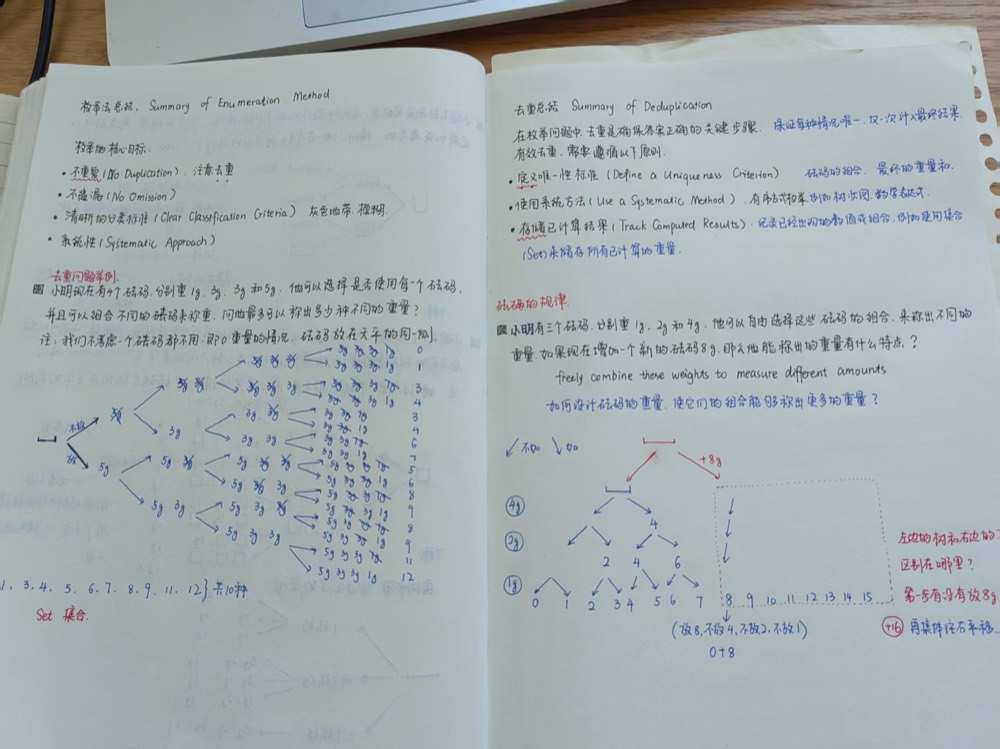 枚举法总结. Summary of Enumeration Method
枚举的核心目标.
• 不重复(No Duplication). 注意去重
• 不遗漏(No Omission)
• 清晰的分类标准(Clear Classification Criteria) 灰色地带. 模糊.
• 系统性(Systematic Approach)
去重问题举例.
小明现在有4个砝码. 分别重1g. 3g. 3g和5g. 他可以选择是否使用每个砝码.
并且可以组合不同的砝码来称重. 问他最多可以称出多少种不同的重量?
注: 我们不考虑一个砝码都不用, 即0重量的情况. 砝码放在天平的同一侧.
3g 3g 1g
3g 3g 3g 3g 1g 1
3g 3g 3g 3g 3g 1g 3
3g 3g 1g 4
3g 3g 3g 3g 1g 3
不放 3g 3g 1g 4
3g 3g 3g 3g 3g 1g 6
3g 3g 1g 7
放 5g 5g 3g 5g 3g 3g 5g 3g 3g 1g 5
5g 3g 3g 1g 6
5g 3g 3g 5g 3g 3g 1g 8
5g 3g 3g 1g 9
5g 3g 5g 3g 3g 5g 3g 3g 1g 8
5g 3g 3g 1g 9
5g 3g 3g 5g 3g 3g 1g 11
5g 3g 3g 1g 12
1. 3. 4. 5. 6. 7. 8. 9. 11. 12} 共10种
Set 集合.
去重总结 Summary of Deduplication
在枚举问题中, 去重是确保答案正确的关键步骤. 保证每种情况唯一. 仅一次计入最终结果.
有效去重, 需要遵循以下原则.
• 定义唯一性标准(Define a Uniqueness Criterion) 砝码的组合. 最终的重量和.
• 使用系统方法(Use a Systematic Method). 有序式枚举. 例如树状图. 数学表达式.
• 存储已计算结果(Track Computed Results). 记录已经出现的数值或组合. 例如使用集合
(Set)来储存所有已计算的重量.
砝码的规律.
小明有三个砝码. 分别重1g, 2g和4g, 他可以自由选择这些砝码的组合. 来称出不同的
重量. 如果现在增加一个新的砝码8g, 那么他能称出的重量有什么特点?
freely combine these weights to measure different amounts
如何设计砝码的重量. 使它们的组合能够称出更多的重量?
↙不加 ↘加
+8g
4g
4
2g
2 4 6
1g
0 1 2 3 4 5 6 7 8 9 10 11 12 13 14 15
(放8, 不放4, 不放2, 不放1)
0+8
左边的树和右边的
区别在哪里?
第一步有没有放8g
+16 再集体往右平移.